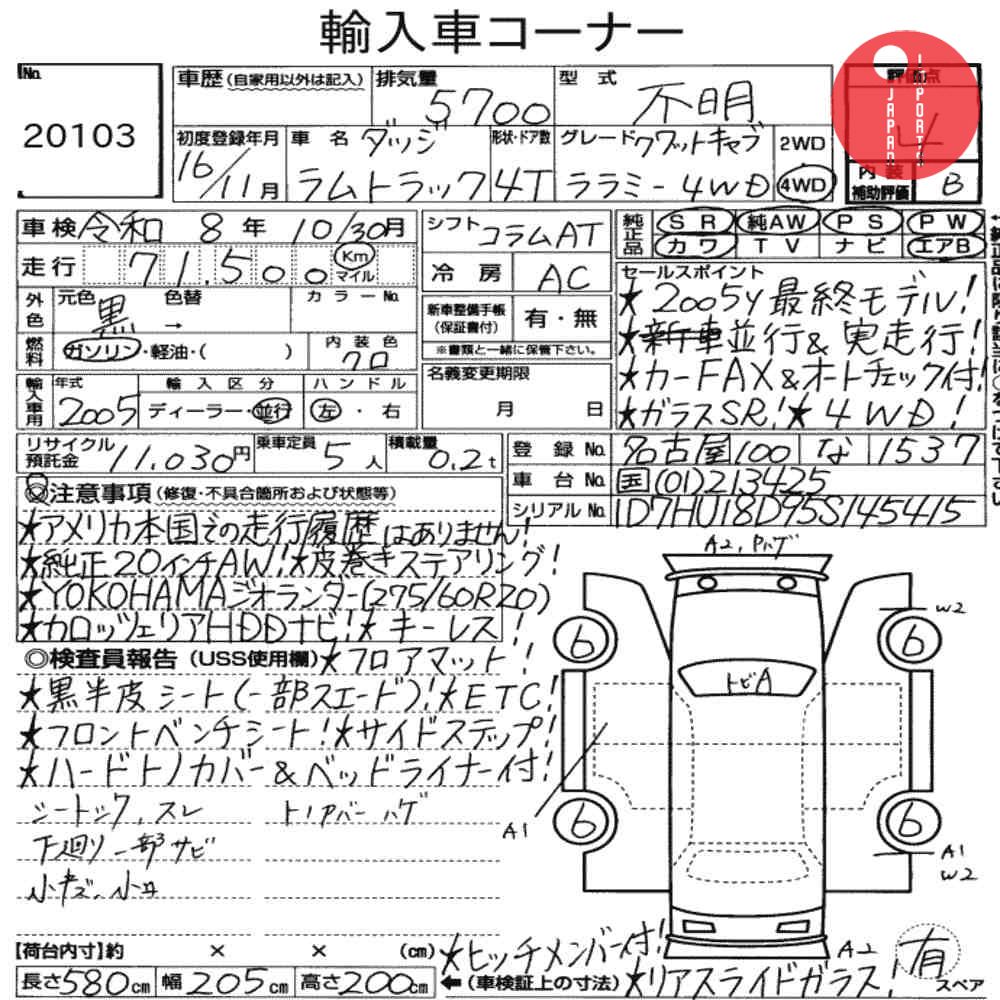 輸入車コーナー
JAPAN IMPORTS
No. 20103
車歴 (自家用以外は記入) 排気量 5700 型式 不明 評価点 4
初度登録年月 16/11月 車名 ダッジ ラムトラック 形状・ドア数 4T グレード クワットキャブ ララミー 4WD 2WD 4WD 内装補助評価 B
車検 令和 8年 10/30月 シフト コラムAT 純正品 SR 純AW PS PW
走行 71,500 Km マイル 冷房 AC カワ TV ナビ エアB
外色 元色 黒 色替 → カラーNo.
新車整備手帳 (保証書付) 有・無
※書類と一緒に保管下さい。
セールスポイント
★2005y 最終モデル!
★新車並行& 実走行!
★カーFAX&オートチェック付!
★ガラスSR!★4WD!
燃料 ガソリン・軽油・( ) 内装色 クロ
名義変更期限 月 日
輸入車用 年式 2005 輸入区分 ディーラー・並行 ハンドル 左・右
リサイクル預託金 11,030円 乗車定員 5人 積載量 0.2t
登録No. 名古屋100 な 1537
車台No. 国(01)213425
シリアルNo. 1D7HU18D95S145415
◎注意事項 (修復・不具合箇所および状態等)
★アメリカ本国での走行履歴はありません!
★純正20インチAW!★皮巻きステアリング!
★YOKOHAMAジオランダー(275/60R20)
★カロッツェリアHDDナビ!★キーレス!
◎検査員報告 (USS使用欄)★フロアマット!
★黒半皮シート(一部スエード)!★ETC!
★フロントベンチシート!★サイドステップ!
★ハードトノカバー&ベッドライナー付!
シートシワ、スレ トノカバー ハゲ
下廻り一部サビ
小キズ、小凹
A2,Pハゲ
W2
6 6
トビA
6 6
A1
A1
W2
A2
【荷台内寸】約 × × (cm)
★ヒッチメンバー付!
長さ580cm 幅205cm 高さ200cm ←(車検証上の寸法) ★リアスライドガラス!
有 スペア